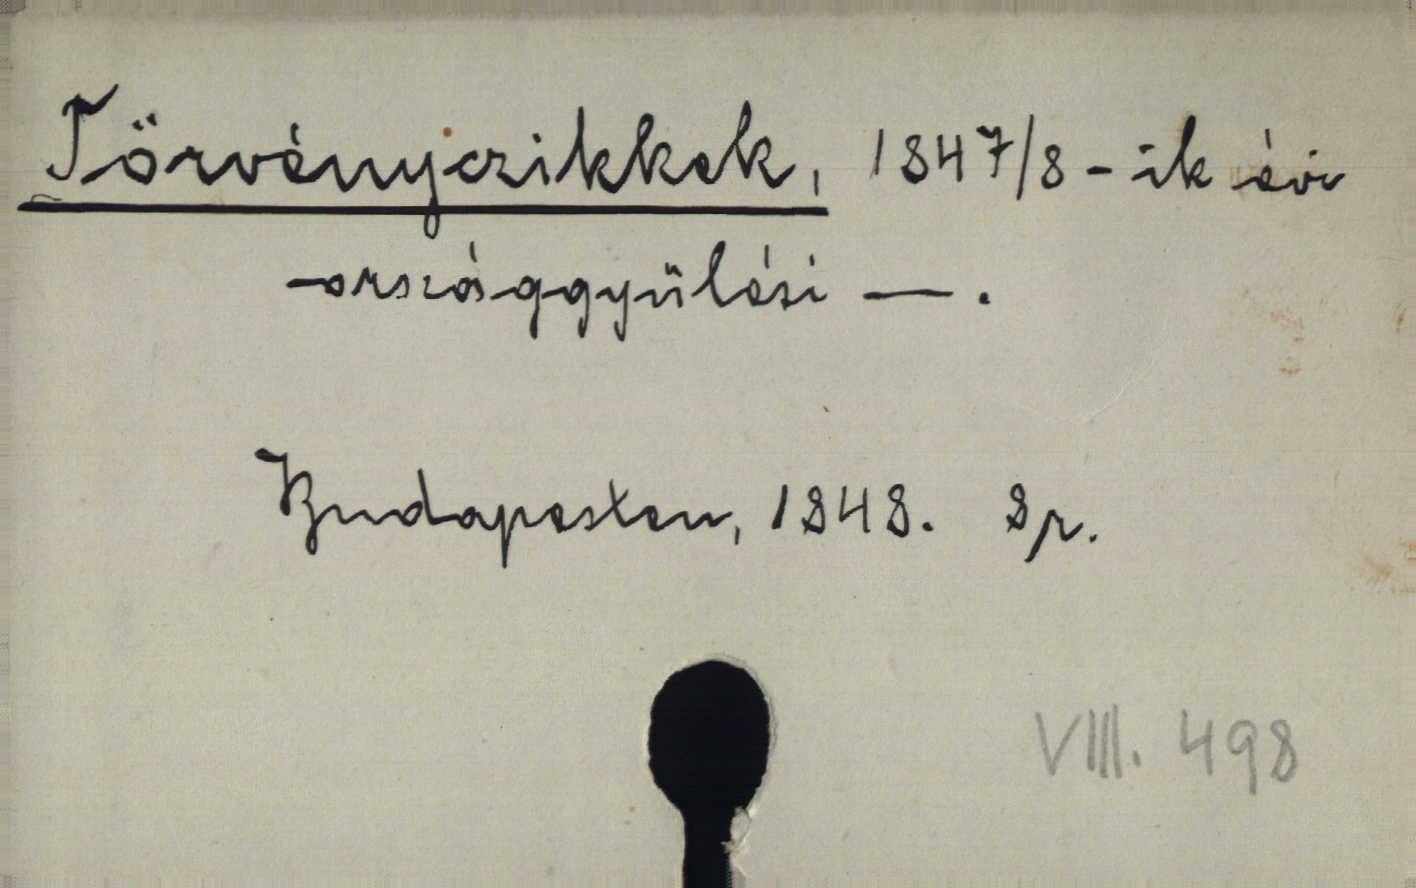 Törvényczikkek, 1847/8-ik évi
országgyülési —.
Budapesten, 1848. 8r.
VIII. 498